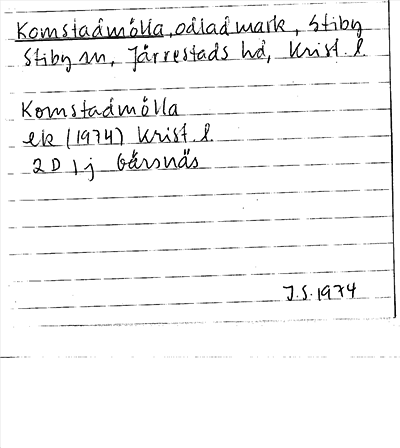 Komstadmölla, odlad mark, Stiby
Stiby sn, Järrestads hd, Krist. l.
Komstadmölla
ek (1974) Krist. l.
2 D 1 j Gärsnäs
J.S. 1974